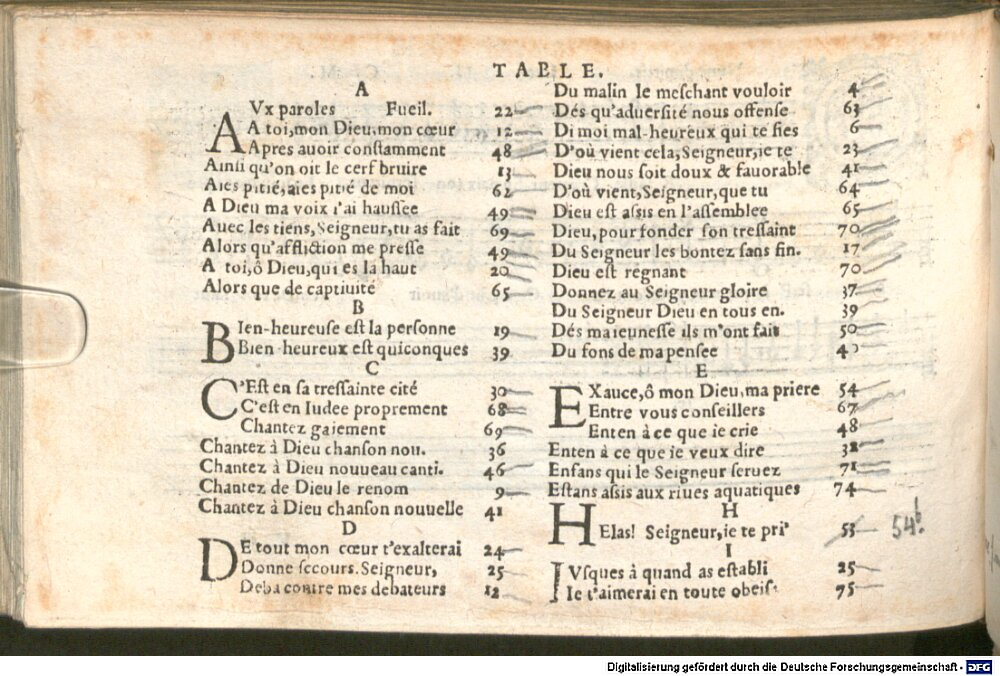 TABLE.
A
AVx paroles Fueil. 22
A toi, mon Dieu, mon cœur 12
Apres auoir conſtamment 48
Ainſi qu'on oit le cerf bruire 13
Aies pitié, aies pitié de moi 62
A Dieu ma voix i'ai hauſſee 49
Auec les tiens, Seigneur, tu as fait 69
Alors qu'affliction me preſſe 49
A toi, ô Dieu, qui es là haut 20
Alors que de captiuité 65
B
BIen-heureuſe eſt la perſonne 19
Bien-heureux eſt quiconques 39
C
C'Eſt en ſa treſſainte cité 30
C'eſt en Iudee proprement 68
Chantez gaiement 69
Chantez à Dieu chanſon nou. 36
Chantez à Dieu nouueau canti. 46
Chantez de Dieu le renom 9
Chantez à Dieu chanſon nouuelle 41
D
DE tout mon cœur t'exalterai 24
Donne ſecours, Seigneur, 25
Deba contre mes debateurs 12
Du malin le meſchant vouloir 4
Dés qu'aduerſité nous offenſe 63
Di moi mal-heureux qui te fies 6
D'où vient cela, Seigneur, ie te 23
Dieu nous ſoit doux & fauorable 41
D'où vient, Seigneur, que tu 64
Dieu eſt aſſis en l'aſſemblee 65
Dieu, pour fonder ſon treſſaint 70
Du Seigneur les bontez ſans fin. 17
Dieu eſt regnant 70
Donnez au Seigneur gloire 37
Du Seigneur Dieu en tous en. 39
Dés ma ieuneſſe ils m'ont fait 50
Du fons de ma penſee 40
E
EXauce, ô mon Dieu, ma priere 54
Entre vous conſeillers 67
Enten à ce que ie crie 48
Enten à ce que ie veux dire 32
Enfans qui le Seigneur ſeruez 71
Eſtans aſſis aux riues aquatiques 74
H
HElas! Seigneur, ie te pri' 53 54b.
I
IVſques à quand as eſtabli 25
Ie t'aimerai en toute obeiſ. 75
Digitalisierung gefördert durch die Deutsche Forschungsgemeinschaft - DFG